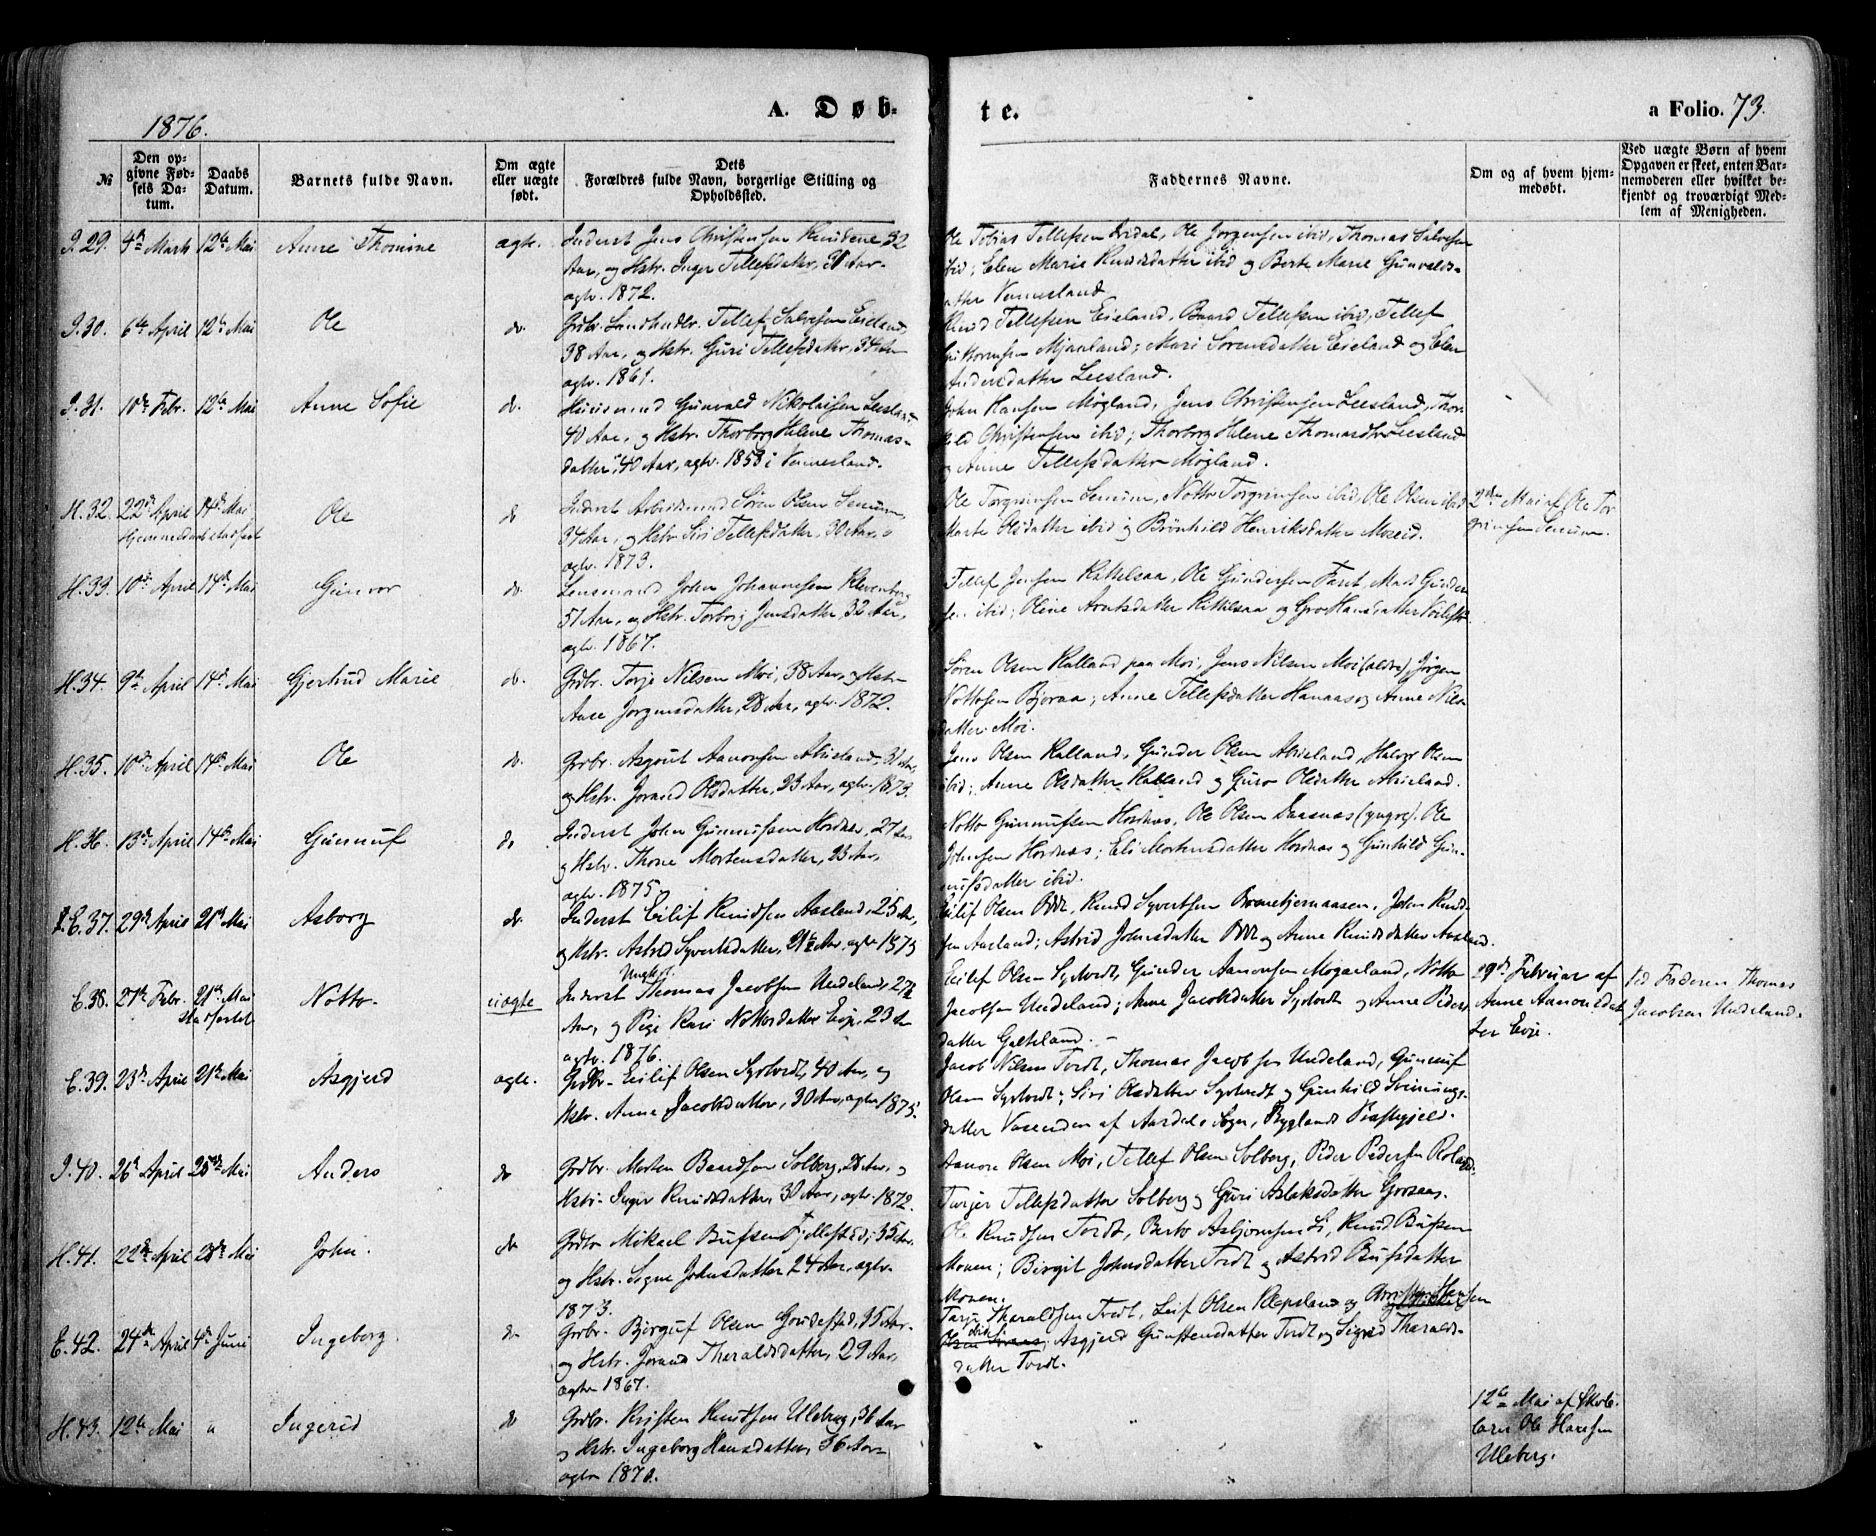 1876.
A. Døb-
te.
a Folio. 73.
№
Den op-
givne Fød-
sels Da-
tum.
Daabs
Datum.
Barnets fulde Navn.
Om ægte
eller uægte
født.
Dets
Forældres fulde Navn, borgerlige Stilling og
Opholdssted.
Faddernes Navne.
Om og af hvem hjem-
medøbt.
Ved uægte Børn af hvem
Opgaven er skeet, enten Bar-
nemoderen eller hvilket be-
kjendt og troværdigt Med-
lem af Menigheden.
I. 29. 4de Marts 12te Mai Anne Thomine ægte. Inderst Jens Christensen 32
Aar, og Hstr. Inger Tellefsdatter, 31 Aar.
agtv. 1872.
Ole Tobias Tellefsen, Ole Jørgensen ibid, Thomas Salvesen
ibid; Elen Marie Knudsdatter ibid og Berte Marie Gunvalds-
datter Vennesland
I. 30. 6te April 12te Mai Ole do. Grbr. Landhndlr. Tellef Salvesen Eieland,
38 Aar, og Hstr. Guri Tellefsdatter, 34 Aar
agtv. 1861.
Knud Tellefsen Eieland, Baard Tellefsen ibid, Tellef
Mjaaland; Mari Sørensdatter Eieland og Elen
Andersdatter Leesland.
I. 31. 10de Febr. 12te Mai Anne Sofie do. Huusmand Gunvald Nikolaisen Leesland
40 Aar, og Hstr. Thorborg Helene Thomas-
datter, 40 Aar, agtv. 1858 i Vennesland.
John Hansen Møgland, Jens Christensen Leesland, Thor-
kild Christensen ibid; Thorborg Helene Thomasdtr Leesland
og Anne Tellefsdatter Møgland.
H. 32. 22de April 14de Mai Ole do Inderst Arbeidsmand Søren Olsen Senum,
Hjemmedaab stadfæst
34 Aar, og Hstr Siri Tellefsdatter, 30 Aar,
agtv. 1873.
Ole Torgrimsen Senum, Notto Torgrimsen ibid, Ole Olsen ibid
Marte Olsdatter ibid og Brønhild Henriksdatter Moseid.
2den Mai af Ole Tor-
grimsen Senum.
H. 33. 10de April 14de Mai Gunvor do. Lensmand John Johannesen Klevenberg
51 Aar, og Hstr. Torborg Jensdatter, 32 Aar,
agtv. 1867.
Tellef Jensen Kattelsaa, Ole Gundersen Faret, Mads Gunder-
sen ibid; Oline Arntsdatter Kittilsaa og Gro Hansdatter
H. 34. 9de April 14de Mai Gjertrud Marie do. Grbr. Torje Nilsen Moi, 38 Aar, og Hstr.
Aase Jørgensdatter, 28 Aar, agtv. 1872.
Søren Olsen Kalland paa Moi, Jens Nilsen Moi (ældre), Jørgen
Nottosen Bjoraa; Anne Tellefsdatter Hanaas og Anne Nils-
datter Moi.
H. 35. 10de April 14de Mai Ole do. Grbr. Asgout Aanonsen Abusland, 31 Aar,
og Hstr. Jorand Olsdatter, 23 Aar, agtv. 1873.
Jens Olsen Kalland, Gunder Olsen Abusland, Halvor Olsen
ibid; Anne Olsdatter Kalland og Guro Olsdatter Abusland.
H. 36. 13de April 14de Mai Gunnuf do Inderst John Gunnufsen Hordnæs, 27 Aar
og Hstr. Thone Mortensdatter, 23 Aar,
agtv. 1875.
Notto Gunnufsen Hordnæs, Ole Olsen Daasnæs (yngre), Ole
Johnsen Hordnæs; Eli Mortensdatter Hordnæs og Gunhild Gun-
nufsdatter ibid.
E. 37. 29de April 21de Mai Asborg do Inderst Eilif Knudsen Aasland, 25 Aar,
og Hstr. Astrid Syvertsdatter, 21½ Aar, agtv 1875
Eilif Olsen Odde, Knud Syvertsen, John Knud-
sen Aasland; Astrid Johnsdatter Odde og Anne Knudsdatter Aasland.
E. 38. 27de Febr. 21de Mai Notto. uægte Inderst Ungkarl Thomas Jacobsen Undeland, 27½
stadfæstet
Aar, og Pige Kari Nottosdatter Evje, 23 Aar
agtv. 1876.
Eilef Olsen Sydtvedt, Gunder Aanonsen Mogaeland, Notto
Jacobsen Undeland; Anne Jacobsdatter Sydtvedt og Anne Peders-
datter Galteland.
29de Februar af
Anne Aanonsdat-
ter Evje.
Ved Faderen Thomas
Jacobsen Undeland.
E. 39. 23de April 21de Mai Asgjerd ægte. Grdbr. Eilif Olsen Sydtvedt, 40 Aar, og
Hstr. Anne Jacobsdatter, 30 Aar, agtv 1875.
Jacob Nilsen Tvedt, Thomas Jacobsen Undeland, Gunnuf
Olsen Sydtvedt; Siri Olsdatter Sydtvedt og Gunhild
datter Vasenden af Aardals Sogn, Bygland Præstegjeld.
I. 40. 26de April 25de Mai Anders do Grdbr. Morten Baardsen Solberg, 28 Aar, og
Hstr. Inger Knudsdatter, 30 Aar, agtv. 1872.
Aanon Olsen Moi, Tellef Olsen Solberg, Peder Pedersen
Turjer Tellefsdatter Solberg og Guri Aslaksdatter
H. 41. 22de April 28de Mai John. do Grdbr Mikael Bufsen Fjellestad, 35 Aar
og Hstr. Signe Johnsdatter 24 Aar, agtv.
1873.
Ole Knudsen Tvedt, Berto Asbjørnsen Li, Knud Bufsen
Monen; Birgit Johnsdatter Tvedt og Astrid Bufsdatter
Monen.
E. 42. 24de April 4de Juni Ingeborg. do Grbr. Bjørguf Olsen Goudestad, 35 Aar.
og Hstr. Jorand Tharaldsdatter, 29 Aar,
agtv 1867.
Tarje Tharaldsen Tvedt, Leif Olsen Klepsland og
Asgjerd Gunstensdatter Tvedt og Sigrid Tharalds-
datter Tvedt.
H. 43. 12te Mai " Ingerid do Grbr. Kristen Knudsen Uleberg, 36 Aar
og Hstr. Ingeborg Hansdatter, 36 Aar
agtv 1870.
12te Mai af Skole-
lærer Ole Hansen
Uleberg.